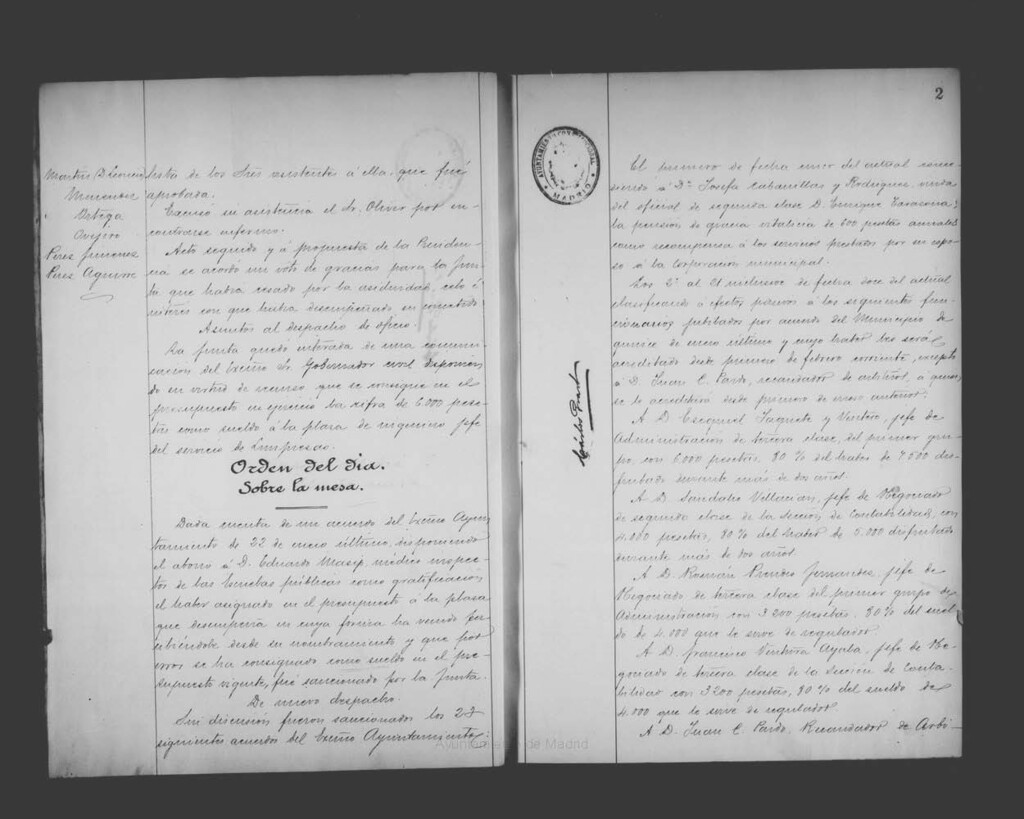 Martín Dionisio
Menendez
Ortega
Ovejero
Perez Jimenez
Perez Aguirre
lista de los Sres asistentes á ella, que fué
aprobada.
Excusó su asistencia el Sr. Olivio por en-
contrarse enfermo.
Acto seguido y á propuesta de la Presiden-
cia se acordó un voto de gracias para la Jun-
ta que había cesado por la asiduidad, celo é
interés con que había desempeñado su cometido.
Asuntos al despacho de oficio.
La Junta quedó enterada de una comuni-
cación del Excmo Sr. Gobernador civil disponien-
do en virtud de recurso que se consigne en el
presupuesto en ejercicio la cifra de 6.000 pese-
tas como sueldo á la plaza de ingeniero jefe
del servicio de Limpiezas.
Orden del dia.
Sobre la mesa.
Dada cuenta de un acuerdo del Excmo Ayun-
tamiento de 22 de enero último, disponiendo
el abono á D. Eduardo Masip, médico inspec-
tor de las Escuelas públicas como gratificación
el haber asignado en el presupuesto á la plaza
que desempeña en cuya forma ha venido per-
cibiéndole desde su nombramiento y que por
error se ha consignado como sueldo en el pre-
supuesto vigente, fué sancionado por la Junta.
De nuevo despacho.
Sin discusión fueron sancionados los 23
siguientes acuerdos del Excmo Ayuntamiento:
AYUNTAMIENTO CONSTITUCIONAL
MADRID
Cárlos Prast
2
El primero de fecha cinco del actual conce-
diendo á Dª Josefa Cabanillas y Rodriguez, viuda
del oficial de segunda clase D. Enrique Tarasona,
la pensión de gracia vitalicia de 600 pesetas anuales
como recompensa á los servicios prestados por su espo-
so á la Corporación municipal.
Los 2º al 21 inclusives de fecha doce del actual
clasificando á efectos pasivos á los siguientes fun-
cionarios jubilados por acuerdo del Municipio de
quince de enero último y cuyo haber les será
acreditado desde primero de febrero corriente, excepto
á D. Juan C. Pardo, recaudador de arbitrios, á quien
se le acreditará desde primero de enero anterior.
A D. Ezequiel Jaquete y Ventero, jefe de
Administración de tercera clase, del primer gru-
po, con 6.000 pesetas, 80 % del haber de 7.500 dis-
frutado durante más de dos años.
A D. Sandalio Villacian, jefe de Negociado
de segunda clase de la Sección de Contabilidad, con
4.000 pesetas, 80 % del haber de 5.000 disfrutado
durante más de dos años.
A D. Román Fernandez, jefe de
Negociado de tercera clase del primer grupo de
Administración con 3.200 pesetas, 80 % del suel-
do de 4.000 que le sirve de regulador.
A D. Francisco Ventura Ayala, jefe de Ne-
gociado de tercera clase de la Sección de Conta-
bilidad con 3.200 pesetas, 80 % del sueldo de
4.000 que le sirve de regulador.
A D. Juan C. Pardo, Recaudador de Arbi-
Ayuntamiento de Madrid